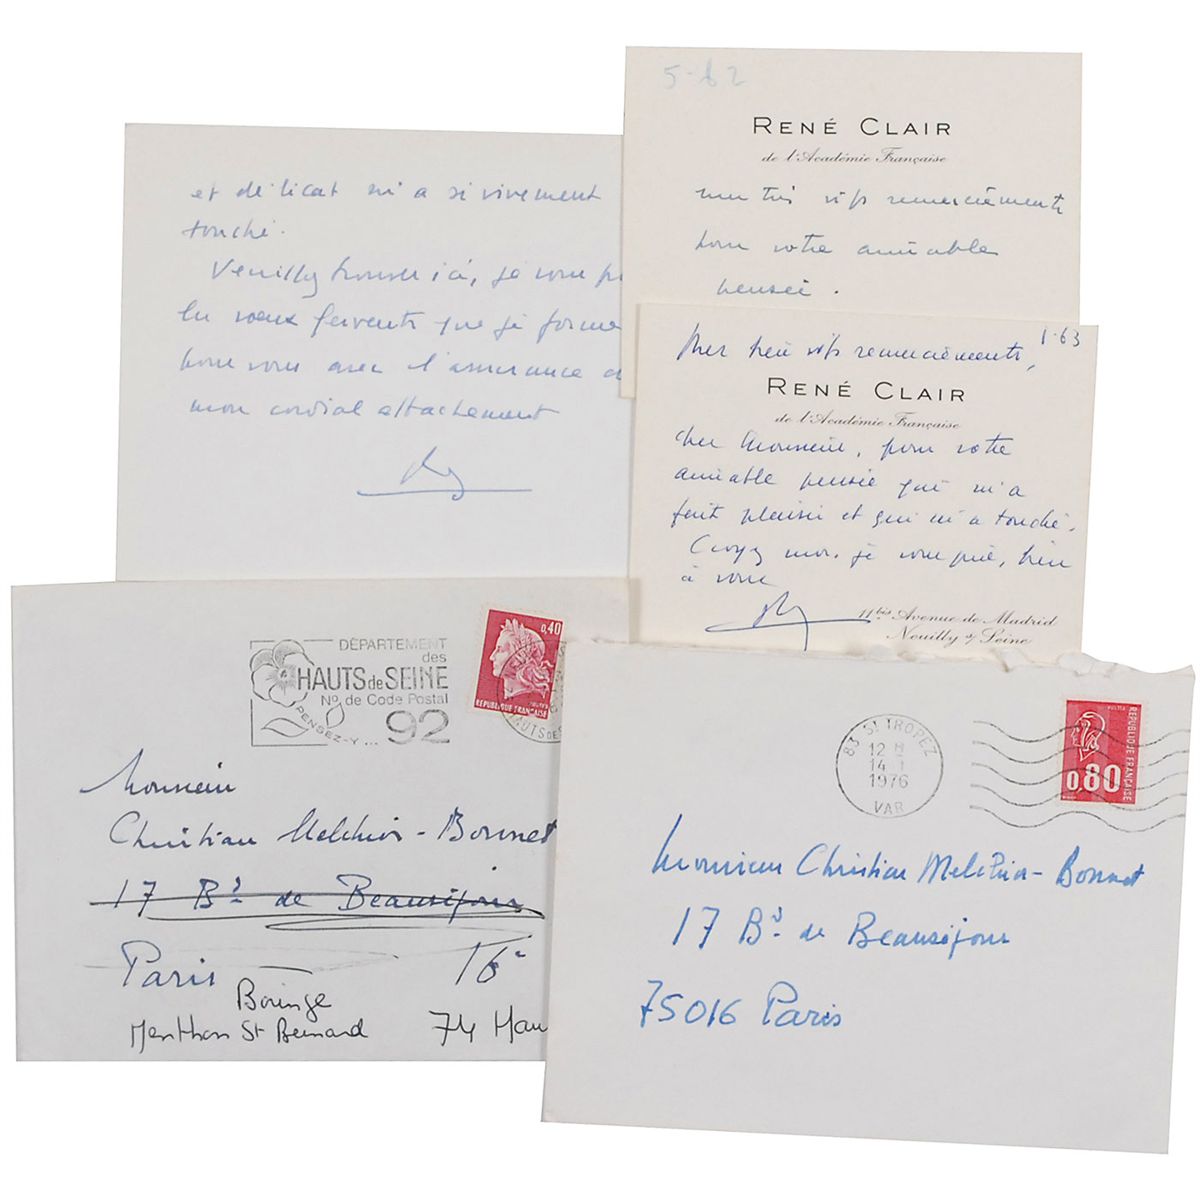 et délicat m'a si vivement
touché.
Veuillez trouver ici, je vous
les voeux fervents que je forme
pour vous avec l'assurance
mon cordial attachement
5-62
RENÉ CLAIR
de l'Académie Française
mes très vifs remerciements
pour votre aimable
pensée.
1-63
Mes bien vifs remerciements,
RENÉ CLAIR
de l'Académie Française
cher Monsieur, pour votre
aimable pensée qui m'a
fait plaisir et qui m'a touché.
Croyez moi, je vous prie, bien
à vous
11bis Avenue de Madrid
Neuilly s/ Seine
DÉPARTEMENT
des
HAUTS de SEINE
No de Code Postal
PENSEZ-Y... 92
0,40
REPUBLIQUE FRANÇAISE
Monsieur
Christian Melchior-Bonnet
17 Bd de Beauséjour
Paris 16e
Menthon St Bernard 74 Hau
83 ST TROPEZ
12 H
14-1
1976
VAR
REPUBLIQUE FRANÇAISE
0,80
Monsieur Christian Melchior-Bonnet
17 Bd de Beauséjour
75016 Paris